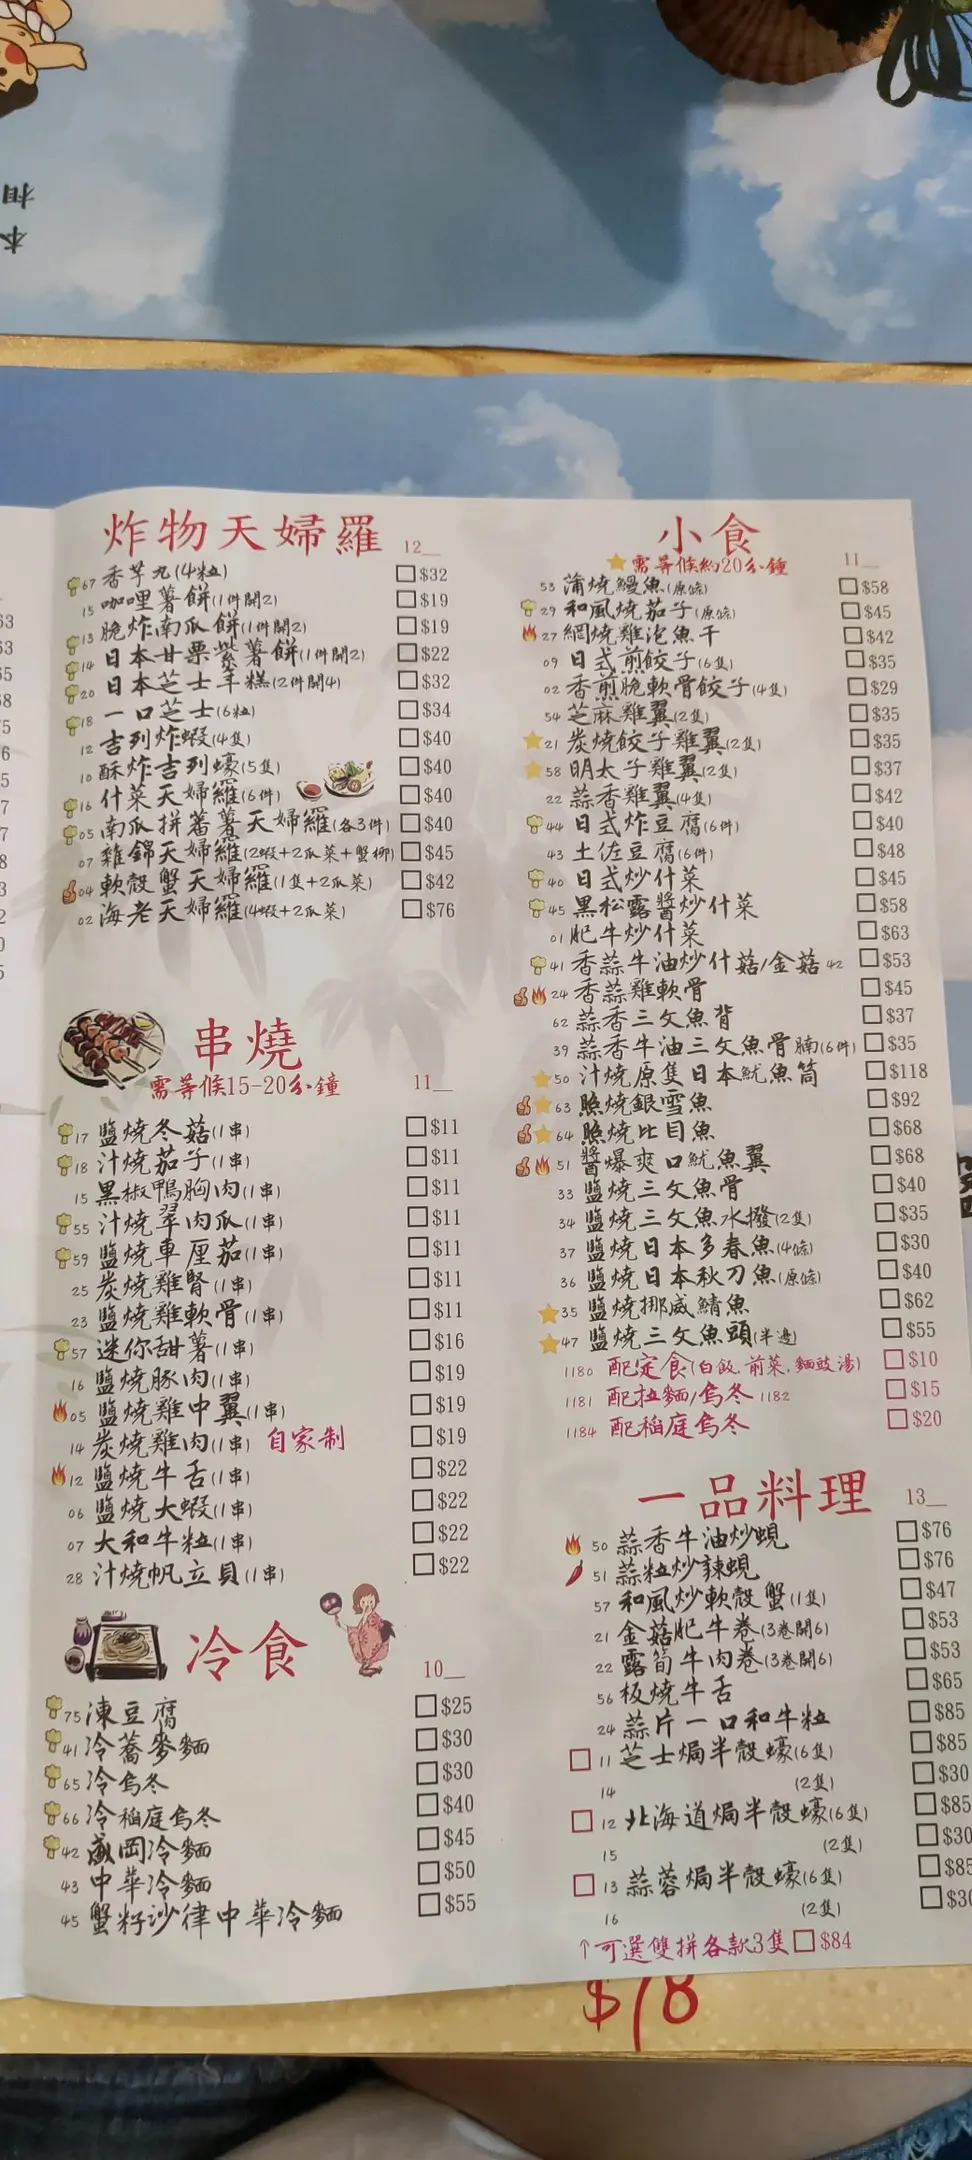 相
本
炸物天婦羅 12__
67 香芋丸(4粒) $32
15 咖哩薯餅(1件開2) $19
13 脆炸南瓜餅(1件開2) $19
14 日本甘栗紫薯餅(1件開2) $22
20 日本芝士年糕(2件開4) $32
18 一口芝士(6粒) $34
12 吉列炸蝦(4隻) $40
10 酥炸吉列蠔(5隻) $40
16 什菜天婦羅(6件) $40
05 南瓜拼蕃薯天婦羅(各3件) $40
07 雜錦天婦羅(2蝦+2瓜菜+蟹柳) $45
04 軟殼蟹天婦羅(1隻+2瓜菜) $42
02 海老天婦羅(4蝦+2瓜菜) $76
串燒
需等候15-20分鐘 11__
17 鹽燒冬菇(1串) $11
18 汁燒茄子(1串) $11
15 黑椒鴨胸肉(1串) $11
55 汁燒翠肉瓜(1串) $11
59 鹽燒車厘茄(1串) $11
25 炭燒雞腎(1串) $11
23 鹽燒雞軟骨(1串) $11
57 迷你甜薯(1串) $16
16 鹽燒豚肉(1串) $19
05 鹽燒雞中翼(1串) $19
14 炭燒雞肉(1串) 自家制 $19
12 鹽燒牛舌(1串) $22
06 鹽燒大蝦(1串) $22
07 大和牛粒(1串) $22
28 汁燒帆立貝(1串) $22
冷食 10__
75 凍豆腐 $25
41 冷蕎麥麵 $30
65 冷烏冬 $30
66 冷稲庭烏冬 $40
42 盛岡冷麵 $45
43 中華冷麵 $50
45 蟹籽沙律中華冷麵 $55
小食
需等候約20分鐘 11__
53 蒲燒鰻魚(原條) $58
29 和風燒茄子(原條) $45
27 網燒雞泡魚干 $42
09 日式煎餃子(6隻) $35
02 香煎脆軟骨餃子(4隻) $29
54 芝麻雞翼(2隻) $35
21 炭燒餃子雞翼(2隻) $35
58 明太子雞翼(2隻) $37
22 蒜香雞翼(4隻) $42
44 日式炸豆腐(6件) $40
43 土佐豆腐(6件) $48
40 日式炒什菜 $45
45 黑松露醬炒什菜 $58
01 肥牛炒什菜 $63
41 香蒜牛油炒什菇/金菇 42 $53
24 香蒜雞軟骨 $45
62 蒜香三文魚背 $37
39 蒜香牛油三文魚骨腩(6件) $35
50 汁燒原隻日本魷魚筒 $118
63 照燒銀雪魚 $92
64 照燒比目魚 $68
51 醬爆爽口魷魚翼 $68
33 鹽燒三文魚骨 $40
34 鹽燒三文魚水撥(2隻) $35
37 鹽燒日本多春魚(4條) $30
36 鹽燒日本秋刀魚(原條) $40
35 鹽燒挪威鯖魚 $62
47 鹽燒三文魚頭(半邊) $55
1180 配定食(白飯.前菜.麵豉湯) $10
1181 配拉麵/烏冬 1182 $15
1184 配稲庭烏冬 $20
一品料理 13__
50 蒜香牛油炒蜆 $76
51 蒜粒炒辣蜆 $76
57 和風炒軟殼蟹(1隻) $47
21 金菇肥牛卷(3卷開6) $53
22 露筍牛肉卷(3卷開6) $53
56 板燒牛舌 $65
24 蒜片一口和牛粒 $85
11 芝士焗半殼蠔(6隻) $85
14 (2隻) $30
12 北海道焗半殼蠔(6隻) $85
15 (2隻) $30
13 蒜蓉焗半殼蠔(6隻) $85
16 (2隻) $30
↑可選雙拼各款3隻 $84
$78